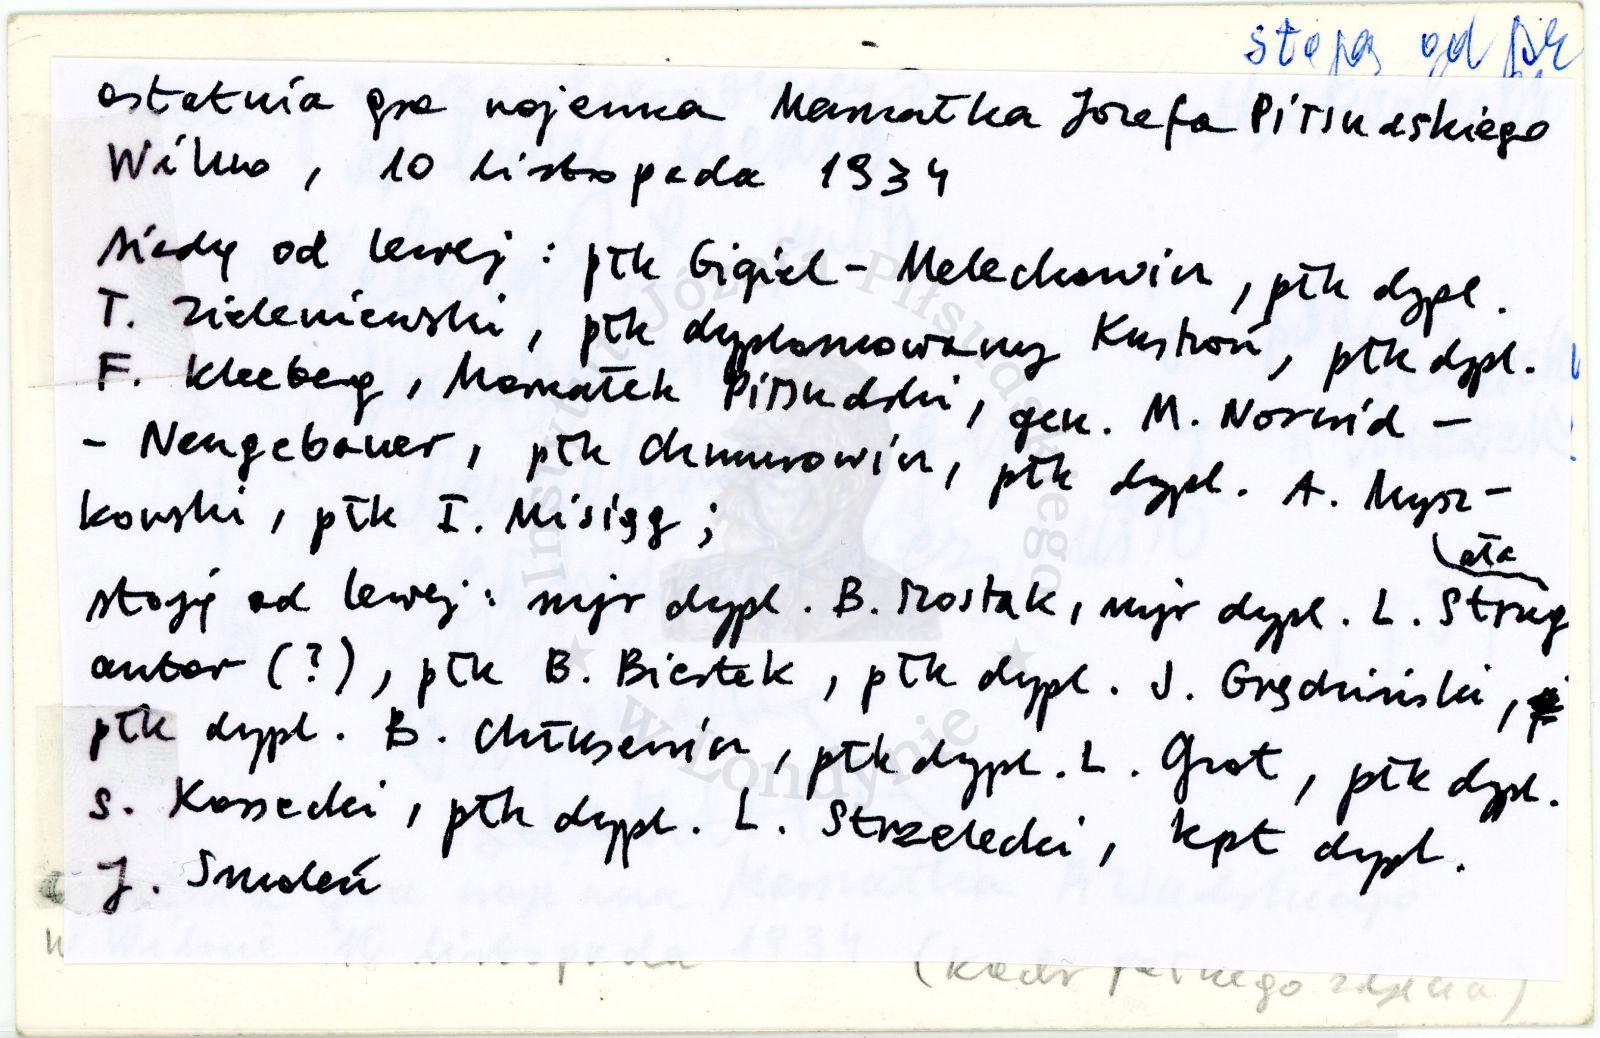 stoją od
ostatnia gra wojenna Marszałka Józefa Piłsudskiego
Wilno, 10 listopada 1934
siedzą od lewej: płk Gigiel-Melechowicz, płk dypl.
T. Zieleniewski, płk dyplomowany Kustroń, płk dypl.
F. Kleeberg, Marszałek Piłsudski, gen. M. Norwid-
- Neugebauer, płk Chmurowicz, płk dypl. A. Mysz-
kowski, płk I. Misiąg;
ała
stoją od lewej: mjr dypl. B. Mostak, mjr dypl. L. Strug
autor (?), płk B. Biestek, płk dypl. J. Grędziński,
płk dypl. B. Chłusewicz, płk dypl. L. Grot, płk dypl.
S. Kossecki, płk dypl. L. Strzelecki, kpt dypl.
J. Smoleń
listopada 1934 (kadr pełnego zdjęcia)
Instytut Józefa Piłsudskiego
w Londynie